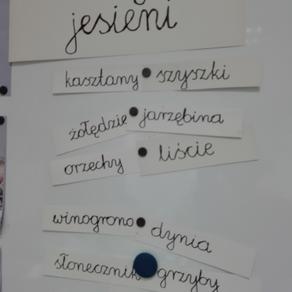 jesieni
kasztany szyszki
żołędzie jarzębina
orzechy liście
winogrono dynia
słonecznik grzyby